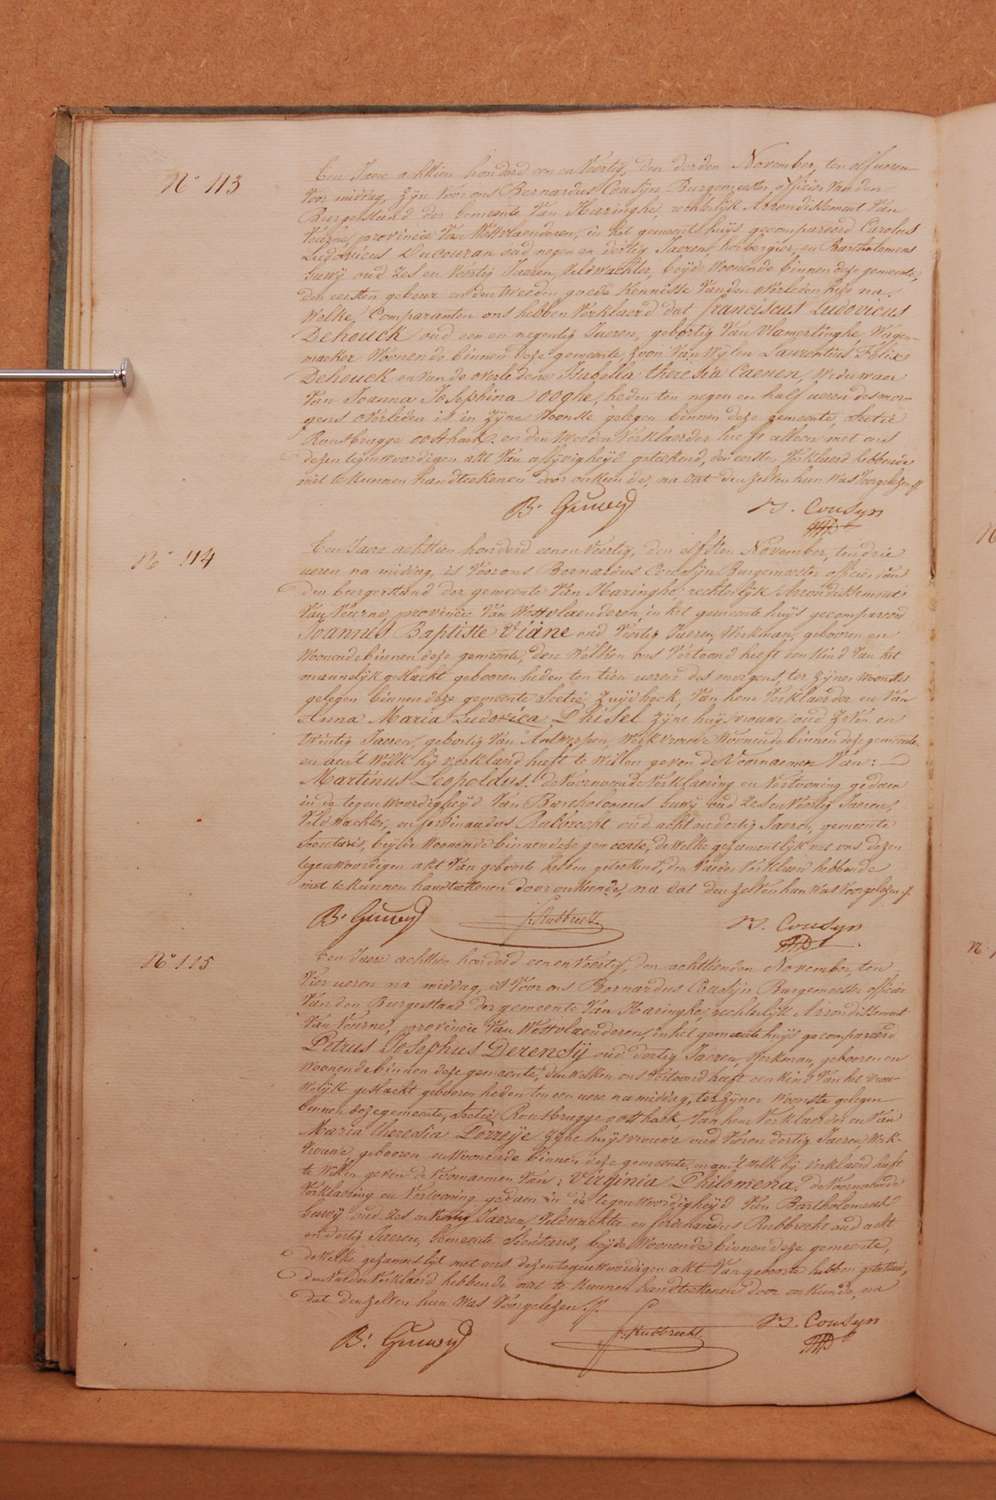 N° 113
Een Jaere achttien honderd een en Veertig, den derden November, ten elf ueren
voor middag, Zijn voor ons Bernardus Cousyn Burgemeester, officier Van den
Burgerstand der Gemeente Van Haringhe, rechtelijk Arrondissement Van
Veurne, provincie Van Westvlaenderen, in het gemeente huijs gecompareerd Carolus
Ludovicus Ducouran oud negen en dertig Jaeren, herbergier, en Bartholomeus
Guwij oud Zes en Veertig Jaeren, Veldwachter, beijde Woonende binnen deze gemeente,
den eersten gebuer en den tweeden goede kennisse Van den overleden hier na
Welke, Comparanten ons hebben Verklaerd dat franciscus Ludovicus
Dehouck oud een en negentig Jaeren, gebortig Van Vlamertinghe, Wagen-
maeker Woonende binnen deze gemeente, Zoon Van Wijlen Laurentius Felix
Dehouck en Van de overledene Isabella theresia Caenen, Weduwaer
Van Joanna Josephina Ooghe, heden ten negen en half ueren des mor-
gens overleden is in Zijne Woonste gelegen binnen deze gemeente, Sectie
Rousbrugge oosthoek, en den tweeden Verklaerder heeft alleen met ons
dezen tegenwoordigen akt Van aflijvigheijd geteekend, den eersten Verklaerd hebbende
niet te kunnen handteekenen door onkunde, na dat den zelven hun Was Voorgelezen ./.
B. Guwij N. Cousyn
N° 114
Een Jaere achttien honderd een en Veertig, den elfsten November, ten drie
ueren na middag, is Voor ons Bernardus Cousijn Burgemeester officier van
den burgerstand der gemeente Van Haringhe, rechtelijk Arrondissement
Van Veurne, provincie Van Westvlaenderen, in het gemeente huijs gecompareerd
Joannes Baptiste Viane oud Veertig Jaeren, Werkman, gebooren en
Woonende binnen deze gemeente, den Welken ons Vertoond heeft een kind Van het
mannelijk geslacht gebooren heden ten tien ueren des morgens, ter Zijner Woonste
gelegen binnen deze gemeente Sectie Zuijdhoek, Van hem Verklaerder en Van
Anna Maria Ludovica Phidel Zijne huijsvrouwe, oud Zeven en
twintig Jaeren, gebortig Van Antwerpen, Werkvrouwe Woonende binnen deze gemeente,
en aen't Welk hij verklaerd heeft te Willen geven de Voornaemen Van:
Martinus Leopoldus. de Voornoemde Verklaering en Vertooning gedaen
in de tegenwoordigheijd Van Bartholomeus Guwij oud Zes en Veertig Jaeren,
Veldwachter, en ferdinandus Rubbrecht oud acht en dertig Jaeren, gemeente
Secretaris, beijde Woonende binnen deze gemeente, de welke gezamentlijk met ons dezen
tegenwoordigen akt Van geboorte hebben geteekend, den Vader Verklaerd hebbende
niet te kunnen handteekenen door onkunde, na dat den zelven hun Was Voorgelezen ./.
B. Guwij f. Rubbrecht N. Cousyn
N° 115
Een Jaere achttien honderd een en Veertig, den achttienden November, ten
Vier ueren na middag, is Voor ons Bernardus Cousijn Burgemeester officier
Van den Burgerstand der gemeente Van Haringhe, rechtelijk Arrondissement
Van Veurne, provincie Van Westvlaenderen, in het gemeente huijs gecompareerd
Petrus Josephus Derensij oud dertig Jaeren, Werkman, gebooren en
Woonende binnen deze gemeente, den Welken ons Vertoond heeft een kind Van het vrou-
welijk geslacht gebooren heden ten een uere na middag, ter Zijner Woonste gelegen
binnen deze gemeente, Sectie Rousbrugge oosthoek, Van hem Verklaerder en Van
Maria theresia Zijne huijsvrouwe oud dertig Jaeren, Werk-
vrouwe, gebooren en Woonende binnen deze gemeente, en aen't welk hij verklaerd heeft
te Willen geven de Voornaemen Van: Virginia Philomena. de Voornoemde
Verklaering en Vertooning gedaen in de tegenwoordigheijd Van Bartholomeus
Guwij oud Zes en Veertig Jaeren, Veldwachter en ferdinandus Rubbrecht oud acht
en dertig Jaeren, gemeente Secretaris, beijde Woonende binnen deze gemeente,
de Welke gezamentlijk met ons dezen tegenwoordigen akt Van geboorte hebben geteekend,
den Vader Verklaerd hebbende niet te kunnen handteekenen door onkunde, na
dat den zelven hun Was Voorgelezen ./.
B. Guwij f. Rubbrecht N. Cousyn